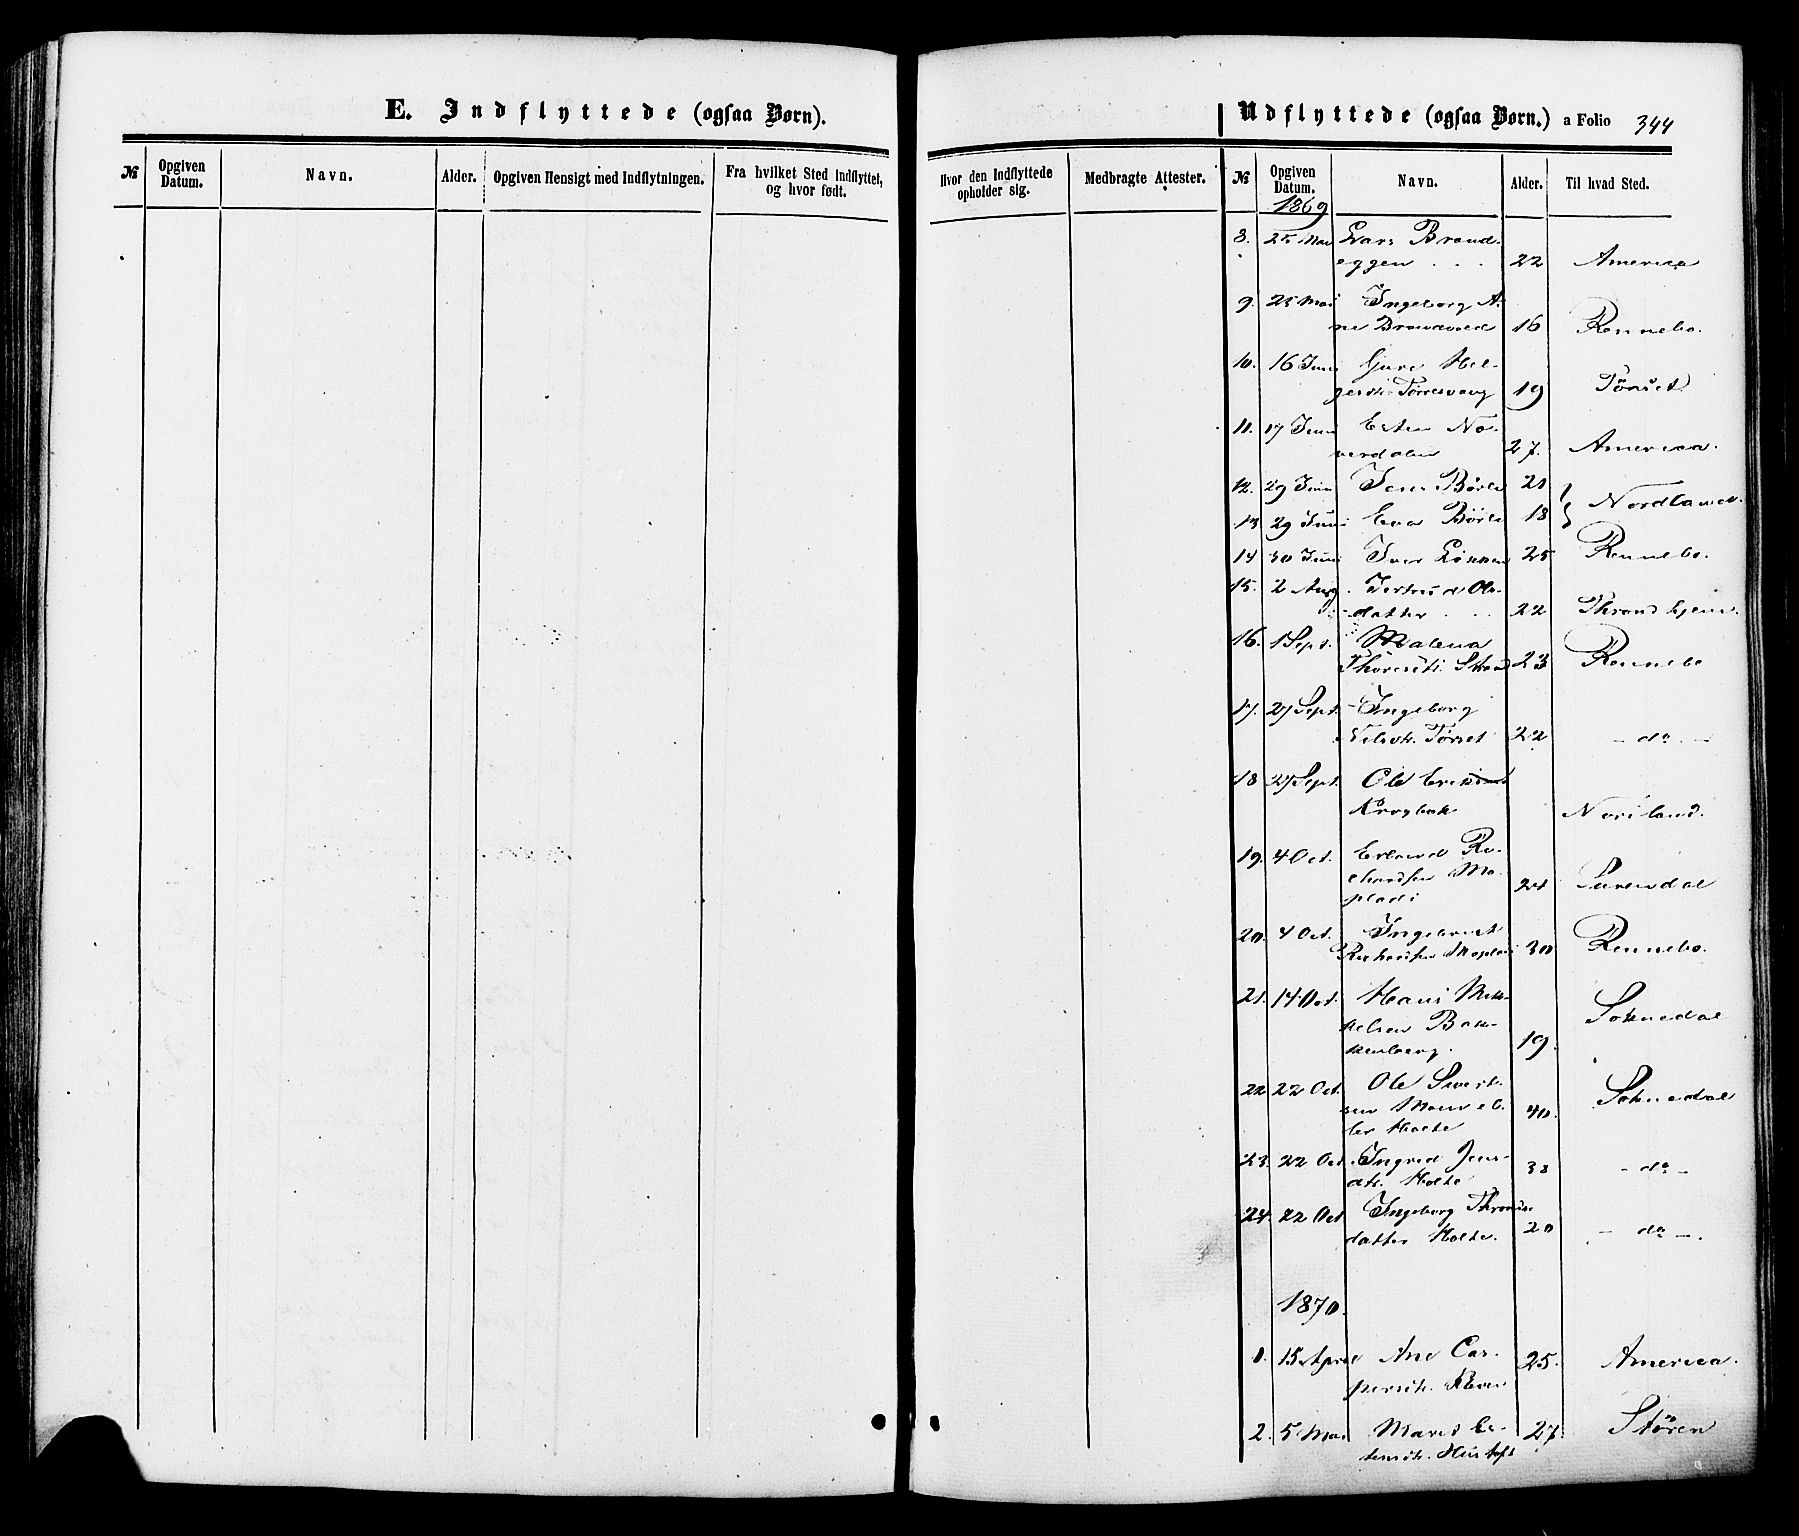 E. Indflyttede (ogsaa Børn).
№ Opgiven Datum. Navn. Alder. Opgiven Hensigt med Indflytningen. Fra hvilket Sted Indflyttet, og hvor født.
Udflyttede (ogsaa Børn.) a Folio 344
Hvor den Indflyttede opholder sig. Medbragte Attester. № Opgiven Datum. Navn. Alder. Til hvad Sted.
1869
8. 25 Mai Lars Brand-
eggen . . . 22 America
9. 25 Mai Ingeborg A-
ne 16 Rennebo.
10. 16 Juni Gure Hel-
gesdtr. 19 Tönset
11. 17 Juni Esten No-
verdalen 27. America.
12. 29 Juni Jens Börli 21
13 29 Juni Eva Börli 18 } Nordland.
14 30 Juni Iver Lökken 25 Rennebo.
15. 2 Aug. Jertrud Ols-
datter . . 22 Throndhjem.
16. 1 Sept. Malena
Thoresdtr. Strand 23 Rennebo
17. 27 Sept. Ingeborg
Nilsdtr. Törset 22 - do -
18 27 Sept. Ole Eriksen
Krogbak Nordland.
19. 4 Oct. Erland Ri-
chardsen Mo-
plads 24 Surendal
20. 4 Oct. Ingebrigt
Richardsen Moplads 30 Rennebo.
21. 14 Oct. Hans Mik-
kelsen Bak-
kenberg. 19. Soknedal
22 22 Oct. Ole Sivert-
sen
Holte 40. Soknedal
23. 22 Oct. Ingrid Jens-
dtr. Holte 38 - do -
24. 22 Oct Ingeborg Thronds-
datter Holte. 20 - do -.
1870.
1. 15 April Ane Cas-
persdtr. 25. America.
2. 5 Mai Marit Es-
tensdtr. Hustoft 27. Stören